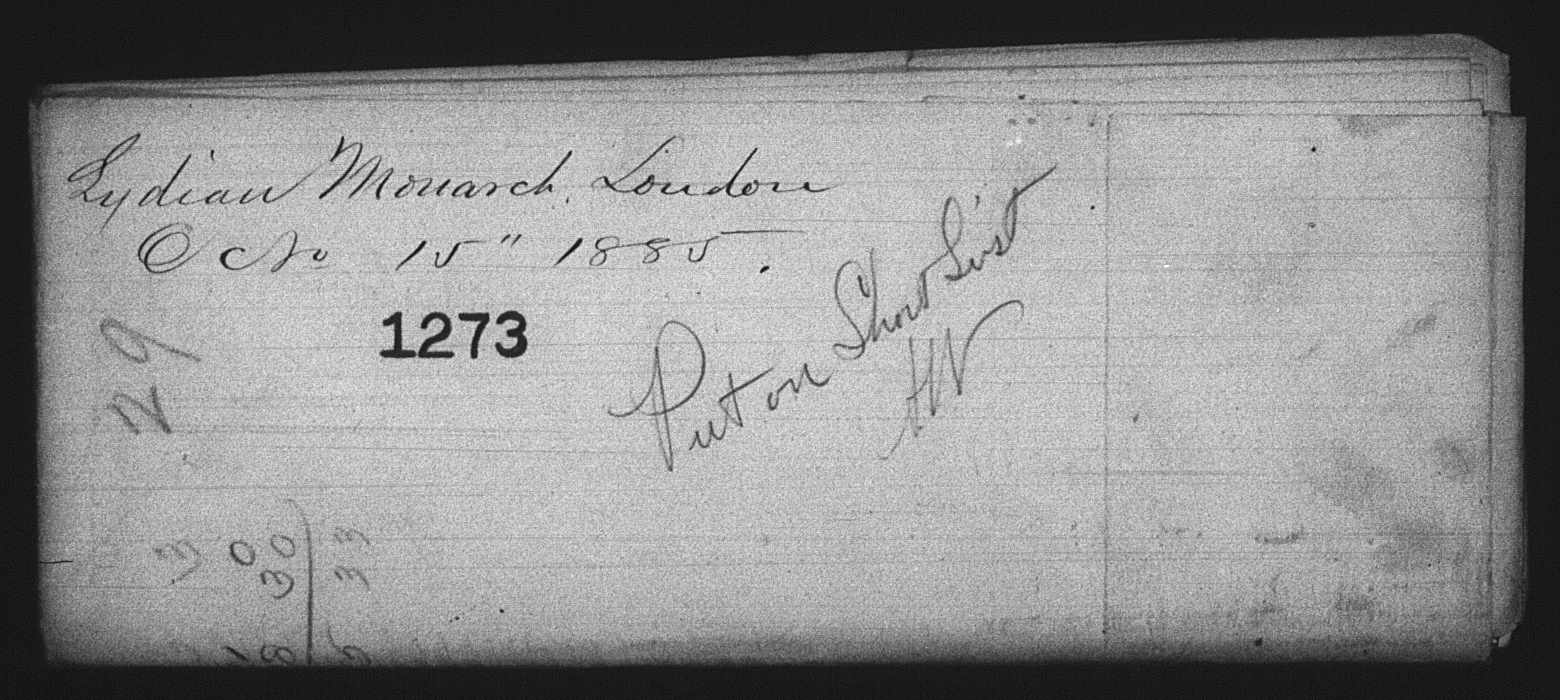 Lydian Monarch, London
Oct 15" 1885.
1273
Put on Show List
29
3
0
30
33